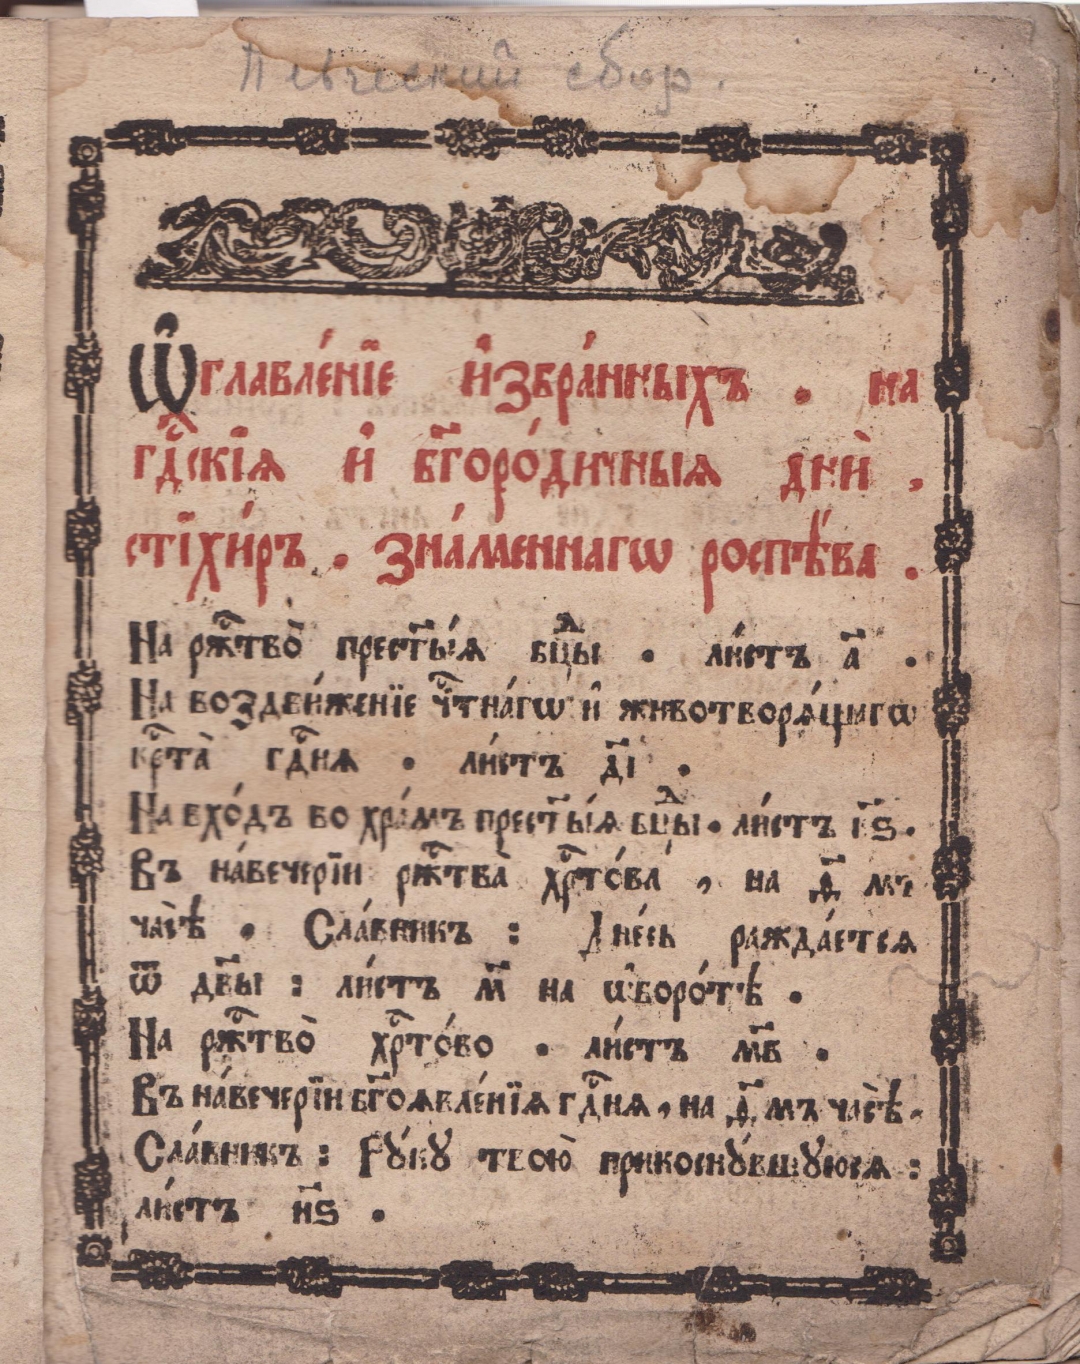 Певческий сбор.
Ѡ҆главле́нїе и҆збра́нныхъ . на
гдⷭ҇скїѧ и҆ бг҃оро́дичныѧ дни̑ ,
стїхи́ръ . зна́меннагѡ роспѣ́ва .
На рж҃тво̀ прест҃ы́ѧ бцⷣы . ли́стъ а҃ .
На воздви́женїе чⷭ҇тна́гѡ и҆ животворѧ́щагѡ
крⷭ҇та̀ гдⷭ҇нѧ . ли́стъ д҃і .
На вхо́дъ во хра́мъ прест҃ы́ѧ бцⷣы . ли́стъ к҃ѕ .
Въ на́вечерїи рж҃тва̀ хрⷭ҇то́ва , на ѳ҃ мъ
часѣ̀ . Сла́вникъ : Дне́сь ражда́етсѧ
ѿ дв҃ы : ли́стъ м҃ на ѡ҆боро́тѣ .
На рж҃тво̀ хрⷭ҇то́во . ли́стъ м҃в .
Въ на́вечерїи бг҃оѧвле́нїѧ гдⷭ҇нѧ , на ѳ҃ мъ часѣ̀ .
Сла́вникъ : Рꙋ́кꙋ твою̀ прикоснꙋ́вшꙋюсѧ :
ли́стъ н҃ѕ .